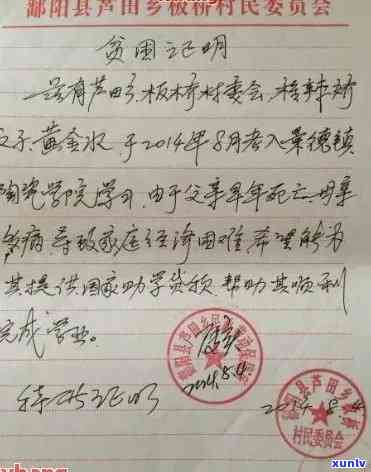 鄱阳县芦田乡板桥村民委员会
贫困证明
兹有芦田乡板桥村委会
女子、黄金水、于2014年8月考入景德镇
陶瓷学院学习,由于父亲早年死亡,母亲
多病,导致家庭经济困难,希望能为
其提供国家助学贷款,帮助其顺利
完成学业。
2014.8.4
特此证明
2014.8.4
鄱阳县芦田乡板桥
村民委员会
xunlv